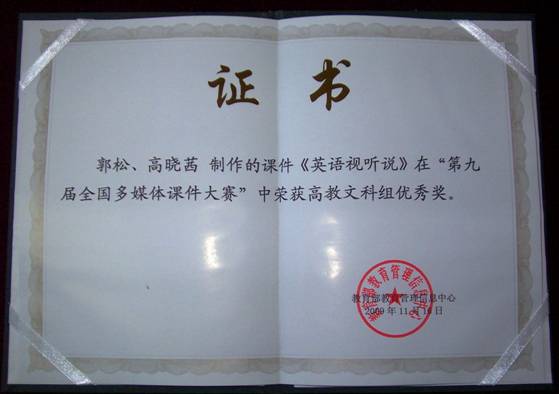 证书
郭松、高晓茜 制作的课件《英语视听说》在“第九
届全国多媒体课件大赛”中荣获高教文科组优秀奖。
教育部教育管理信息中心
教育部教育管理信息中心
2009年11月16日